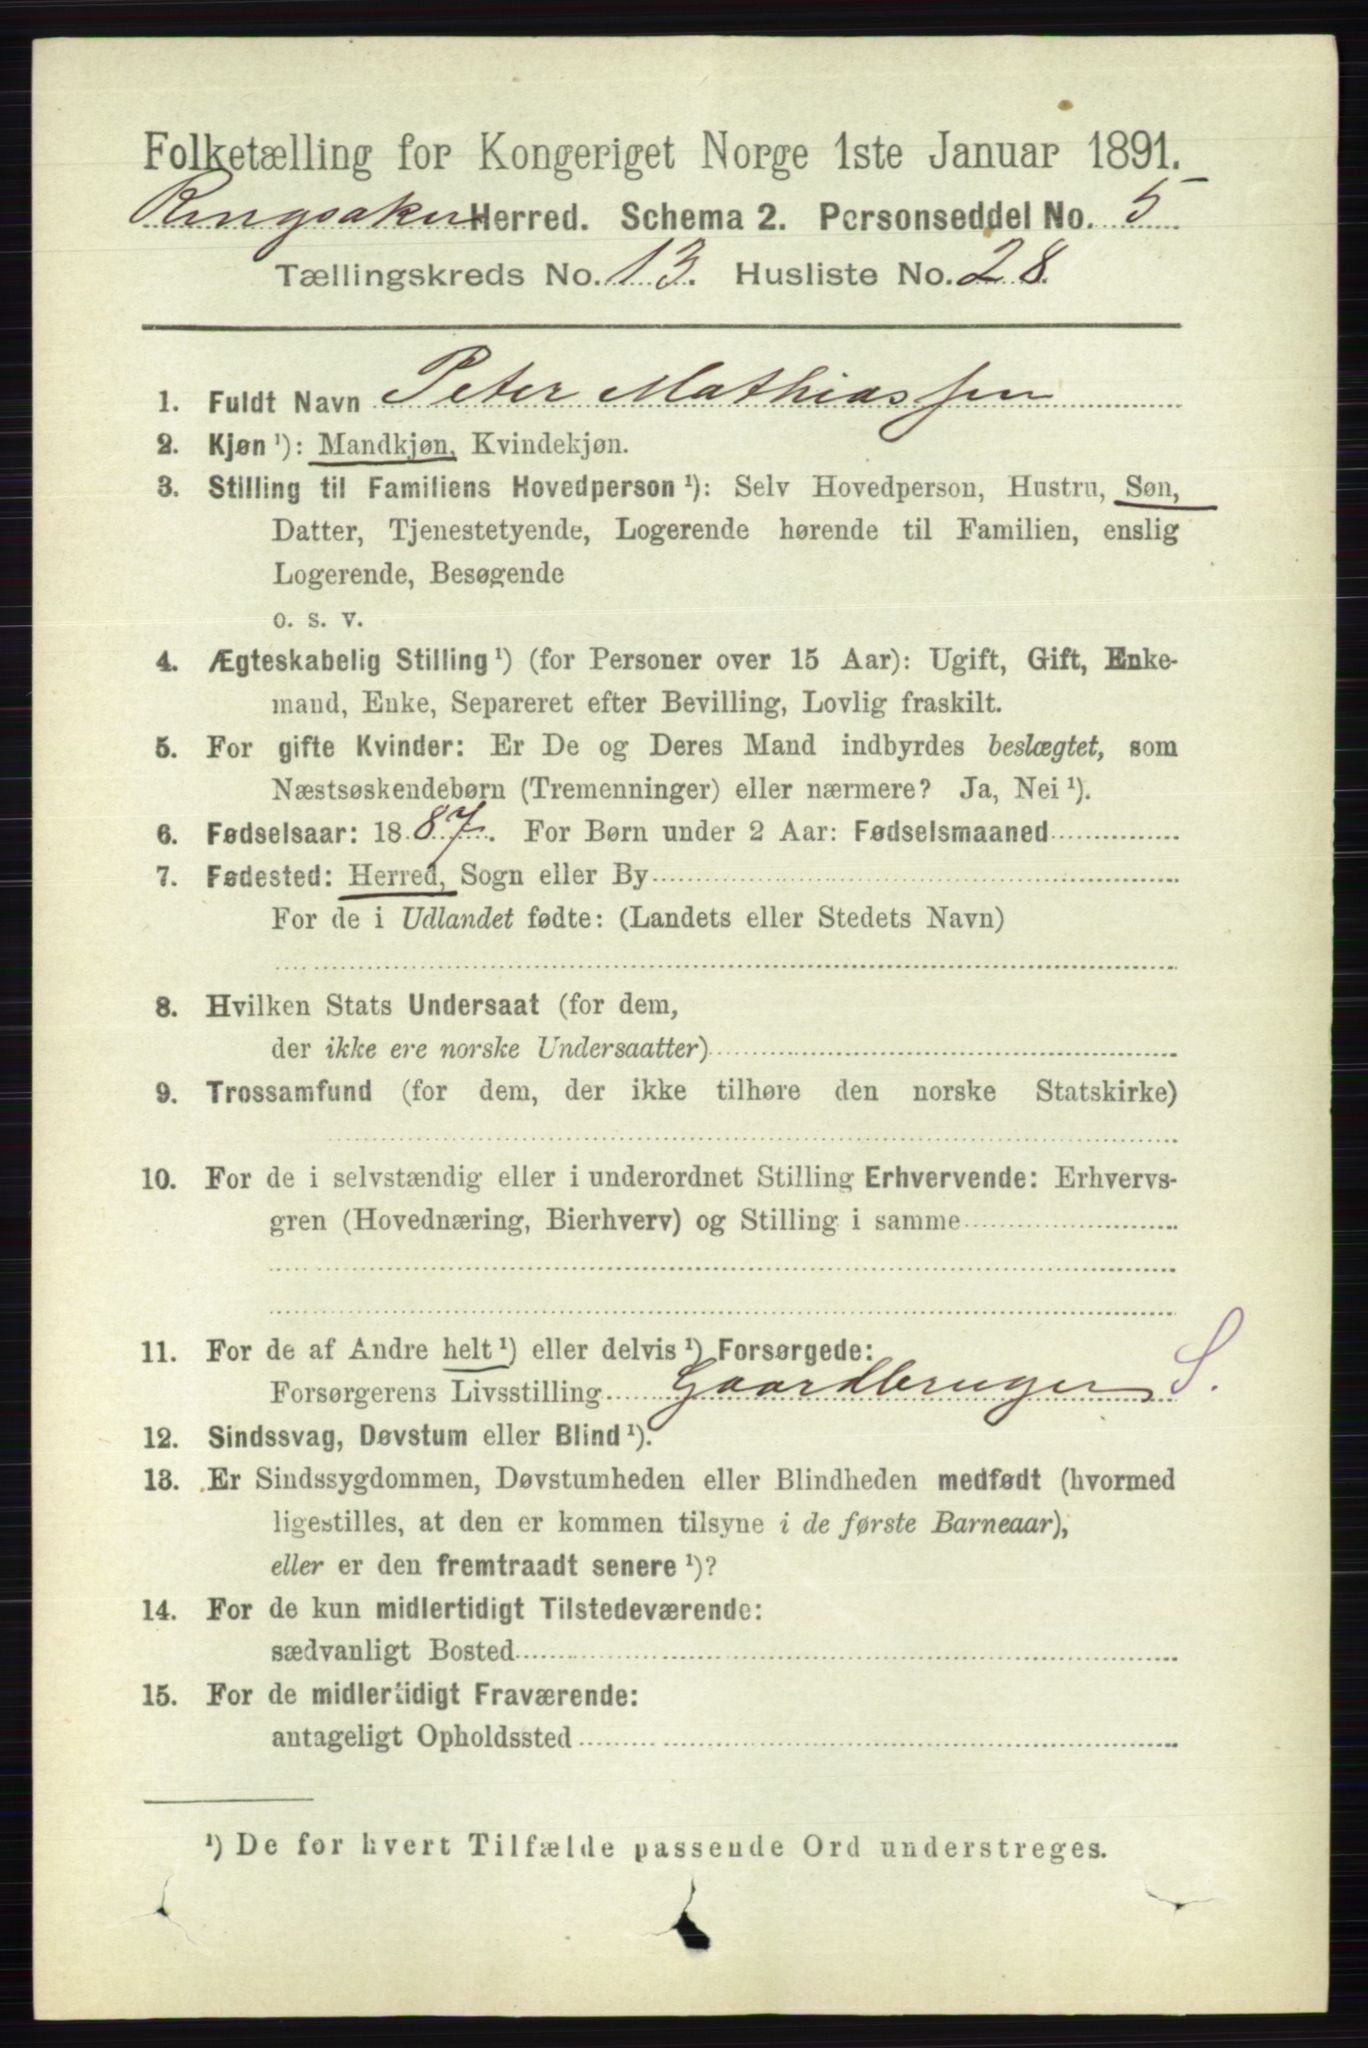 Folketælling for Kongeriget Norge 1ste Januar 1891.
Ringsaker Herred. Schema 2. Personseddel No. 5
Tællingskreds No. 13. Husliste No. 28.
1. Fuldt Navn Peter Mathiassen
2. Kjøn ¹): Mandkjøn, Kvindekjøn.
3. Stilling til Familiens Hovedperson ¹): Selv Hovedperson, Hustru, Søn,
Datter, Tjenestetyende, Logerende hørende til Familien, enslig
Logerende, Besøgende
o. s. v.
4. Ægteskabelig Stilling ¹) (for Personer over 15 Aar): Ugift, Gift, Enke-
mand, Enke, Separeret efter Bevilling, Lovlig fraskilt.
5. For gifte Kvinder: Er De og Deres Mand indbyrdes beslægtet, som
Næstsøskendebørn (Tremenninger) eller nærmere? Ja, Nei ¹).
6. Fødselsaar: 1887. For Børn under 2 Aar: Fødselsmaaned
7. Fødested: Herred, Sogn eller By
For de i Udlandet fødte: (Landets eller Stedets Navn)
8. Hvilken Stats Undersaat (for dem,
der ikke ere norske Undersaatter)
9. Trossamfund (for dem, der ikke tilhøre den norske Statskirke)
10. For de i selvstændig eller i underordnet Stilling Erhvervende: Erhvervs-
gren (Hovednæring, Bierhverv) og Stilling i samme
11. For de af Andre helt ¹) eller delvis ¹) Forsørgede:
Forsørgerens Livsstilling Gaardbruger S.
12. Sindssvag, Døvstum eller Blind ¹).
13. Er Sindssygdommen, Døvstumheden eller Blindheden medfødt (hvormed
ligestilles, at den er kommen tilsyne i de første Barneaar),
eller er den fremtraadt senere ¹)?
14. For de kun midlertidigt Tilstedeværende:
sædvanligt Bosted
15. For de midlertidigt Fraværende:
antageligt Opholdssted
¹) De for hvert Tilfælde passende Ord understreges.